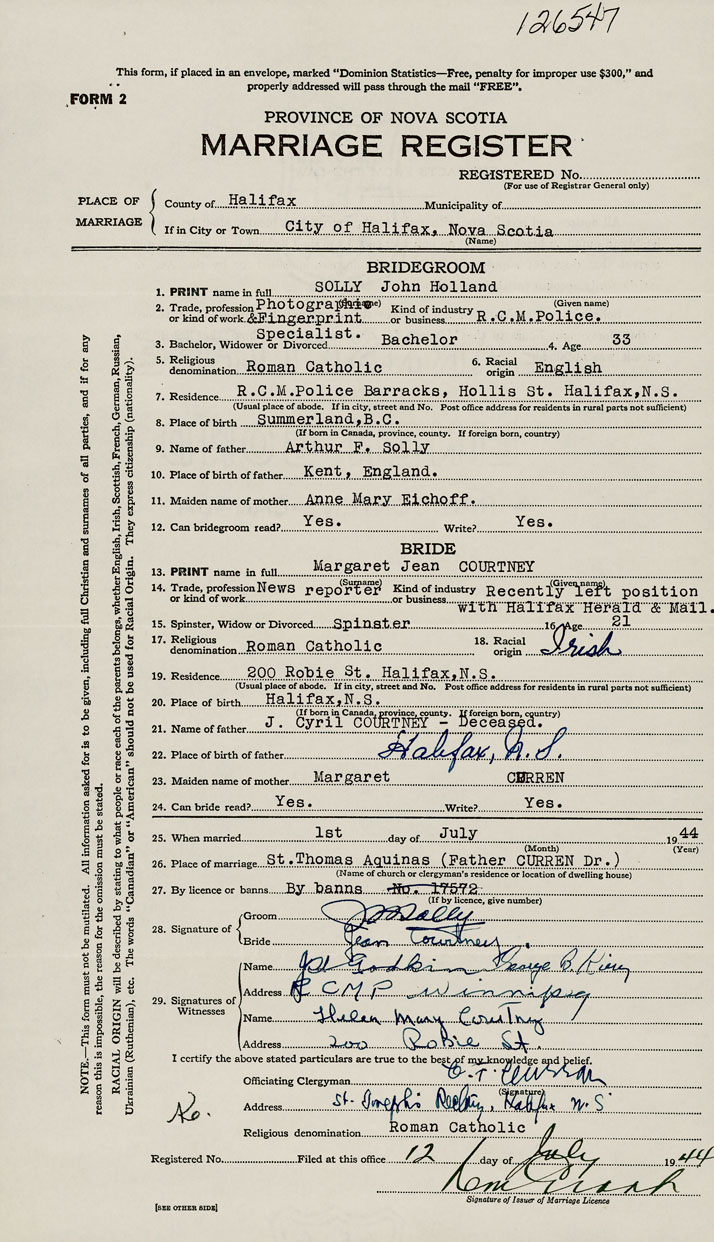 126547
This form, if placed in an envelope, marked "Dominion Statistics—Free, penalty for improper use $300," and
properly addressed will pass through the mail "FREE".
FORM 2
PROVINCE OF NOVA SCOTIA
MARRIAGE REGISTER
REGISTERED No.
(For use of Registrar General only)
PLACE OF MARRIAGE
County of Halifax Municipality of
If in City or Town City of Halifax, Nova Scotia
(Name)
BRIDEGROOM
1. PRINT name in full SOLLY John Holland
(Surname) (Given name)
2. Trade, profession or kind of work Photographic &Fingerprint Specialist. Kind of industry or business R.C.M.Police.
3. Bachelor, Widower or Divorced Bachelor 4. Age 33
5. Religious denomination Roman Catholic 6. Racial origin English
7. Residence R.C.M.Police Barracks, Hollis St. Halifax,N.S.
(Usual place of abode. If in city, street and No. Post office address for residents in rural parts not sufficient)
8. Place of birth Summerland,B.C.
(If born in Canada, province, county. If foreign born, country)
9. Name of father Arthur F. Solly
10. Place of birth of father Kent, England.
11. Maiden name of mother Anne Mary Eichoff.
12. Can bridegroom read? Yes. Write? Yes.
BRIDE
13. PRINT name in full Margaret Jean COURTNEY
(Surname) (Given name)
14. Trade, profession or kind of work News reporter Kind of industry or business Recently left position
with Halifax Herald & Mail.
15. Spinster, Widow or Divorced Spinster 16. Age 21
17. Religious denomination Roman Catholic 18. Racial origin Irish
19. Residence 200 Robie St. Halifax,N.S.
(Usual place of abode. If in city, street and No. Post office address for residents in rural parts not sufficient)
20. Place of birth Halifax,N.S.
(If born in Canada, province, county. If foreign born, country)
21. Name of father J. Cyril COURTNEY - Deceased.
22. Place of birth of father Halifax, N.S.
23. Maiden name of mother Margaret CURREN
24. Can bride read? Yes. Write? Yes.
25. When married 1st day of July 1944
(Month) (Year)
26. Place of marriage St.Thomas Aquinas (Father CURREN Dr.)
(Name of church or clergyman's residence or location of dwelling house)
27. By licence or banns By banns No. 17572
(If by licence, give number)
28. Signature of
Groom Solly
Bride Jean Courtney
29. Signatures of Witnesses
Name Godkin George B.
Address RCMP Winnipeg
Name Helen Mary Courtney
Address 200 Robie St.
I certify the above stated particulars are true to the best of my knowledge and belief.
Officiating Clergyman
(Signature)
Address St. Joseph's Rectory, Halifax N.S
Religious denomination Roman Catholic
Registered No. Filed at this office 12 day of July 1944
Signature of Issuer of Marriage Licence
[SEE OTHER SIDE]
NOTE.—This form must not be mutilated. All information asked for is to be given, including full Christian and surnames of all parties, and if for any
reason this is impossible, the reason for the omission must be stated.
RACIAL ORIGIN will be described by stating to what people or race each of the parents belongs, whether English, Irish, Scottish, French, German, Russian,
Ukrainian (Ruthenian), etc. The words "Canadian" or "American" should not be used for Racial Origin. They express citizenship (nationality).